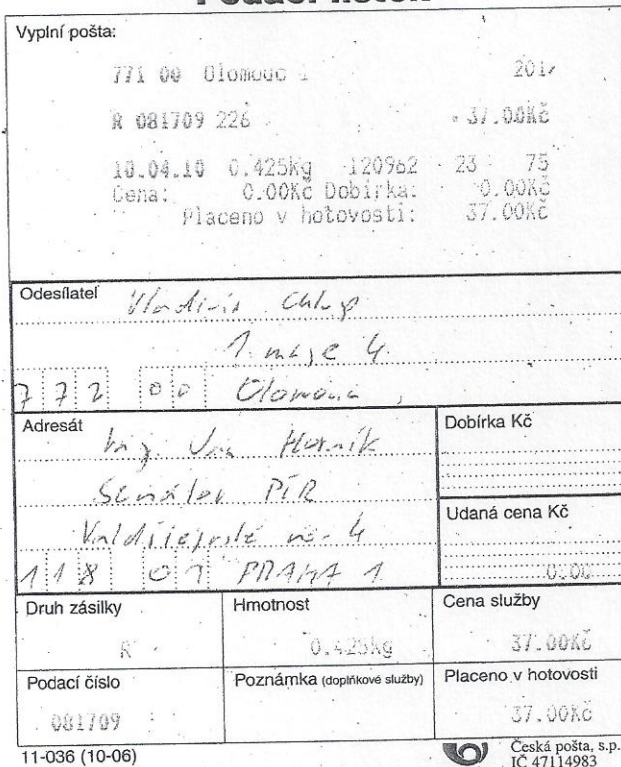 Vyplní pošta:
771 00 Olomouc 1 201
R 081709 226 37.00Kč
10.04.10 0.425kg 120962 23 75
Cena: 0.00Kč Dobírka: 0.00Kč
Placeno v hotovosti: 37.00Kč
Odesílatel
1. máje 4
772 00 Olomouc
Adresát
Ing. Jan Horník
Senátor PČR
Valdštejnské ná. 4
118 01 PRAHA 1
Dobírka Kč
Udaná cena Kč
0.00
Druh zásilky
R
Hmotnost
0.425kg
Cena služby
37.00Kč
Podací číslo
081709
Poznámka (doplňkové služby)
Placeno v hotovosti
37.00Kč
11-036 (10-06)
Česká pošta, s.p.
IČ 47114983